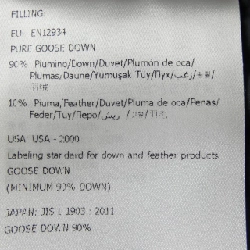 FILLING
EU EN12934
PURE GOOSE DOWN
90% Piumino/Down/Duvet/Plumon de oca/
Plumas/Daune/Yumuşak Tüy/Пух/زغب/
10% Piuma/Feather/Duvet/Pluma de oca/Penas/
Feder/Tuy/Перо/ريش/
USA USA - 2000
Labeling standard for down and feather products
GOOSE DOWN
(MINIMUM 90% DOWN)
JAPAN: JIS L 1903 : 2011
GOOSE DOWN 90%